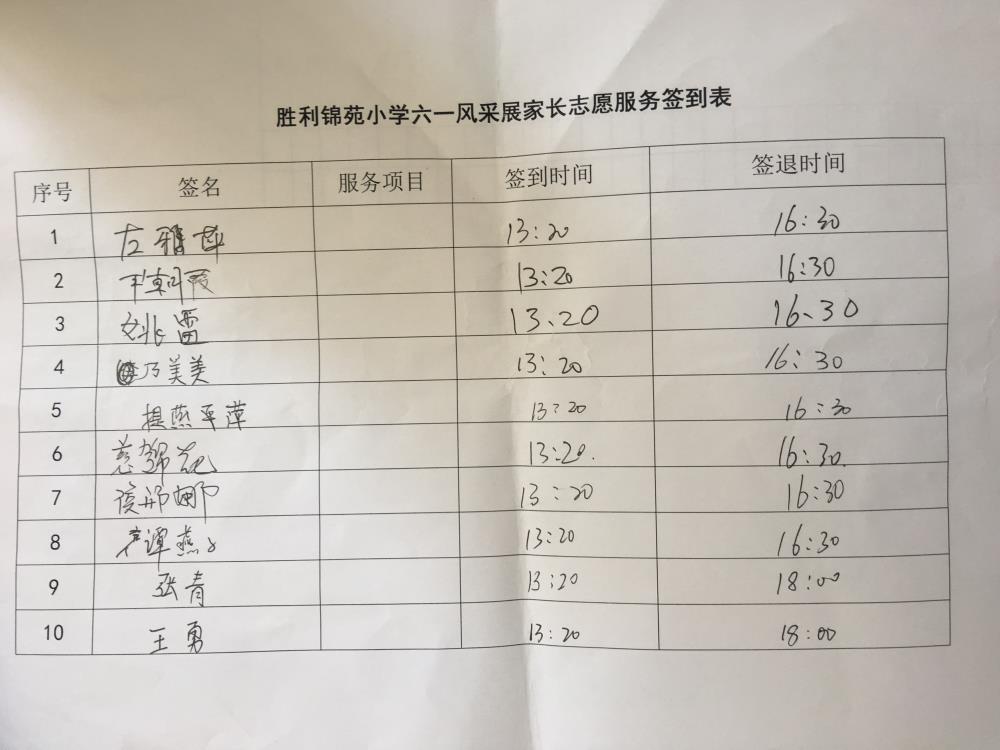 胜利锦苑小学六一风采展家长志愿服务签到表
序号 签名 服务项目 签到时间 签退时间
1 左雅 13:20 16:30
2 13:20 16:30
3 雷 13、20 16、30
4 乃美美 13:20 16:30
5 提燕平萍 13:20 16:30
6 13:20. 16:30.
7 娜 13:20 16:30
8 谭燕 13:20 16:30
9 张青 13:20 18:00
10 王勇 13:20 18:00